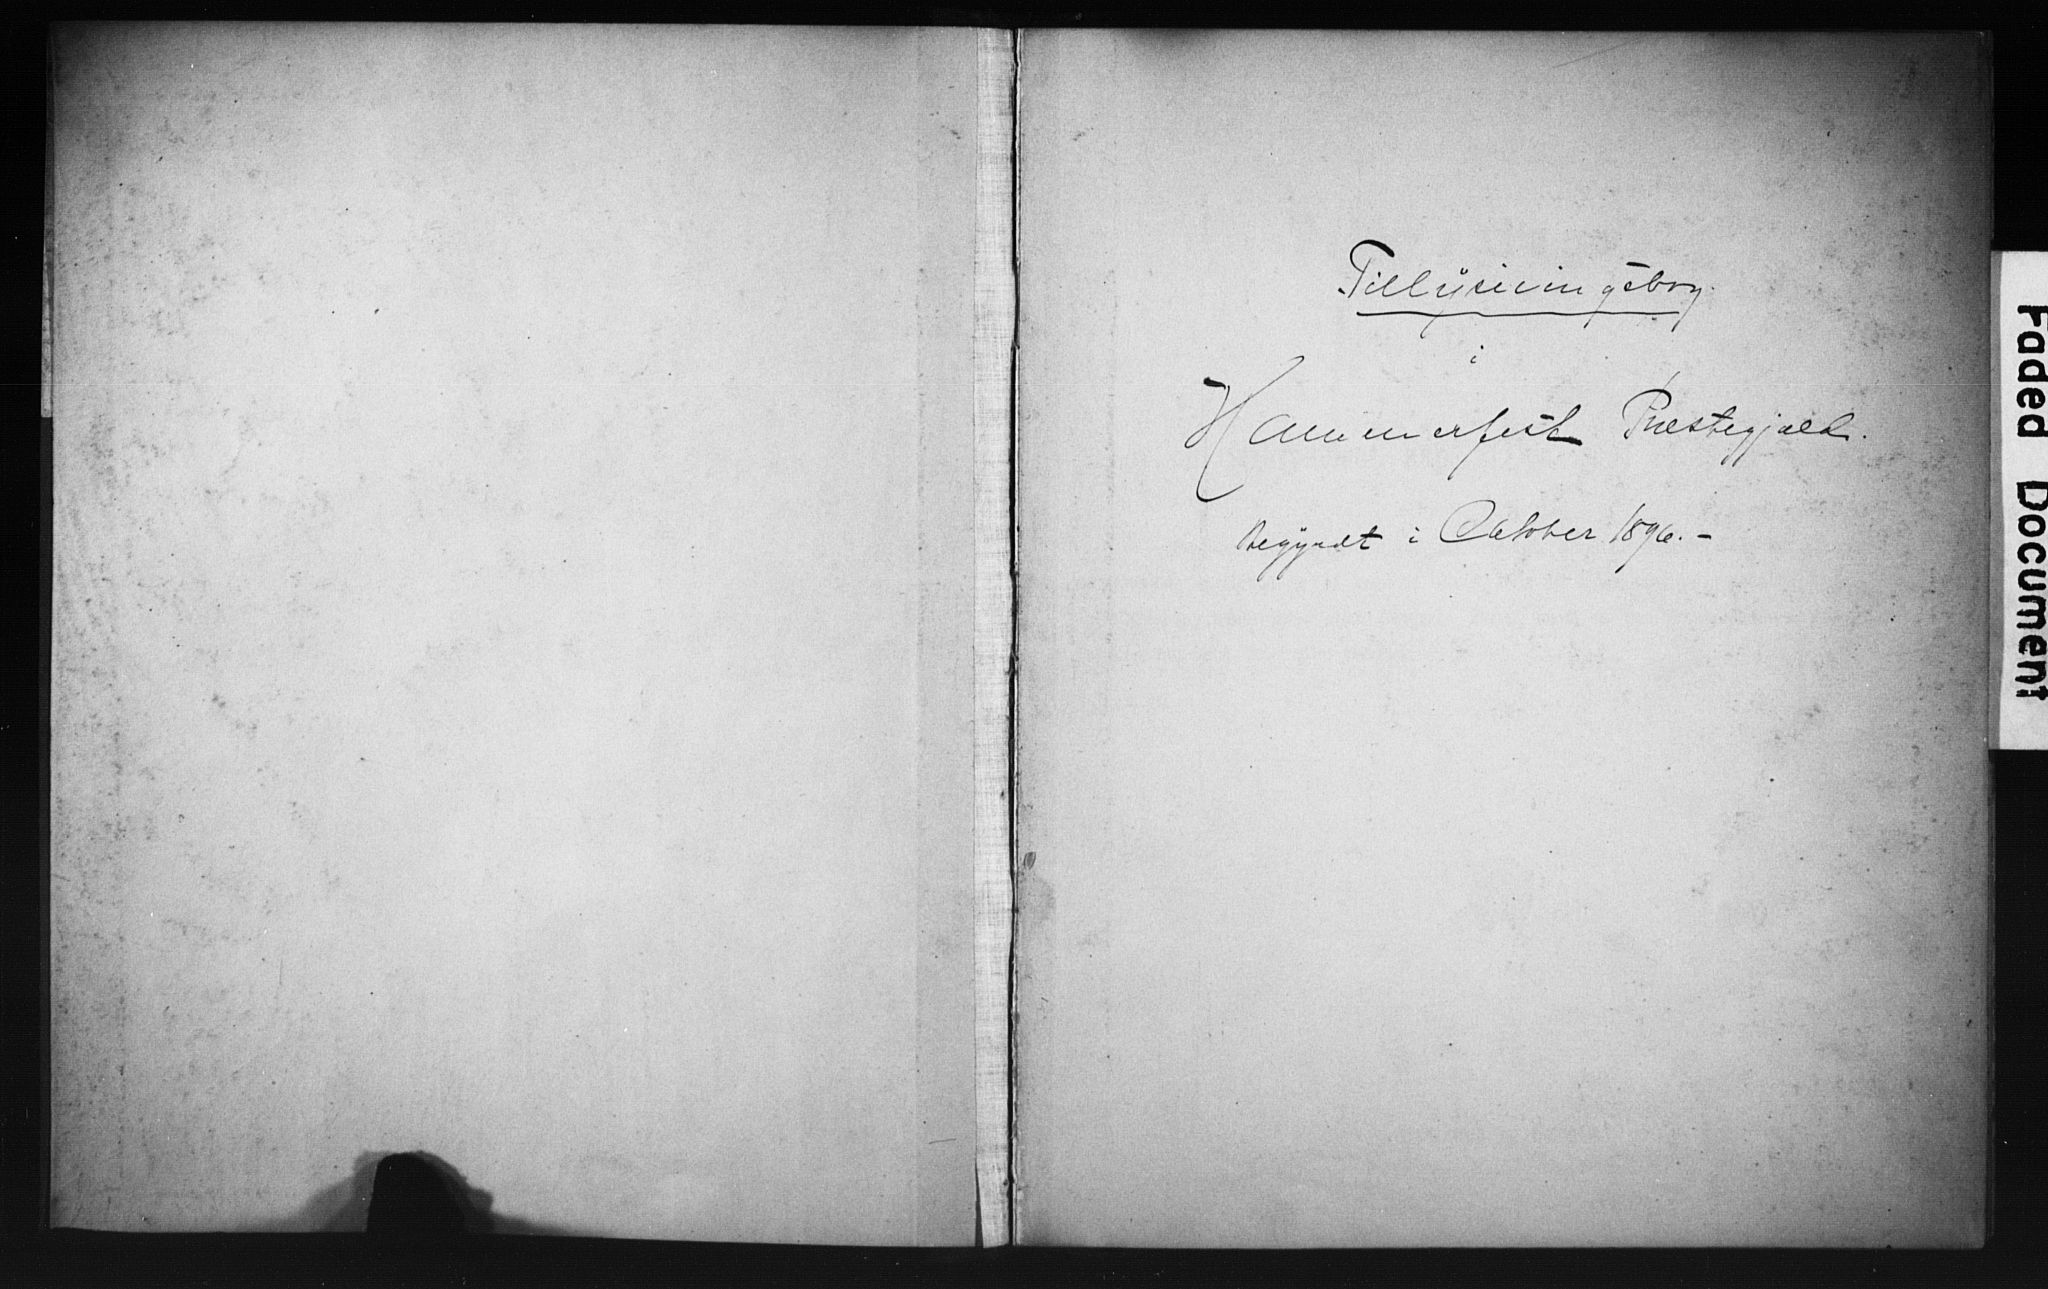 Tillysningsbog.
i
Hammerfest Præstegjæld.
Begyndt i October 1896.-
Faded Document